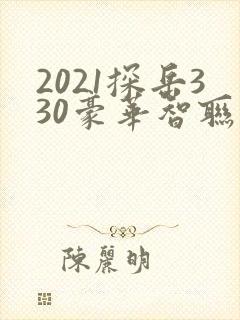 2021探岳3
30豪華智聯
陳麗明